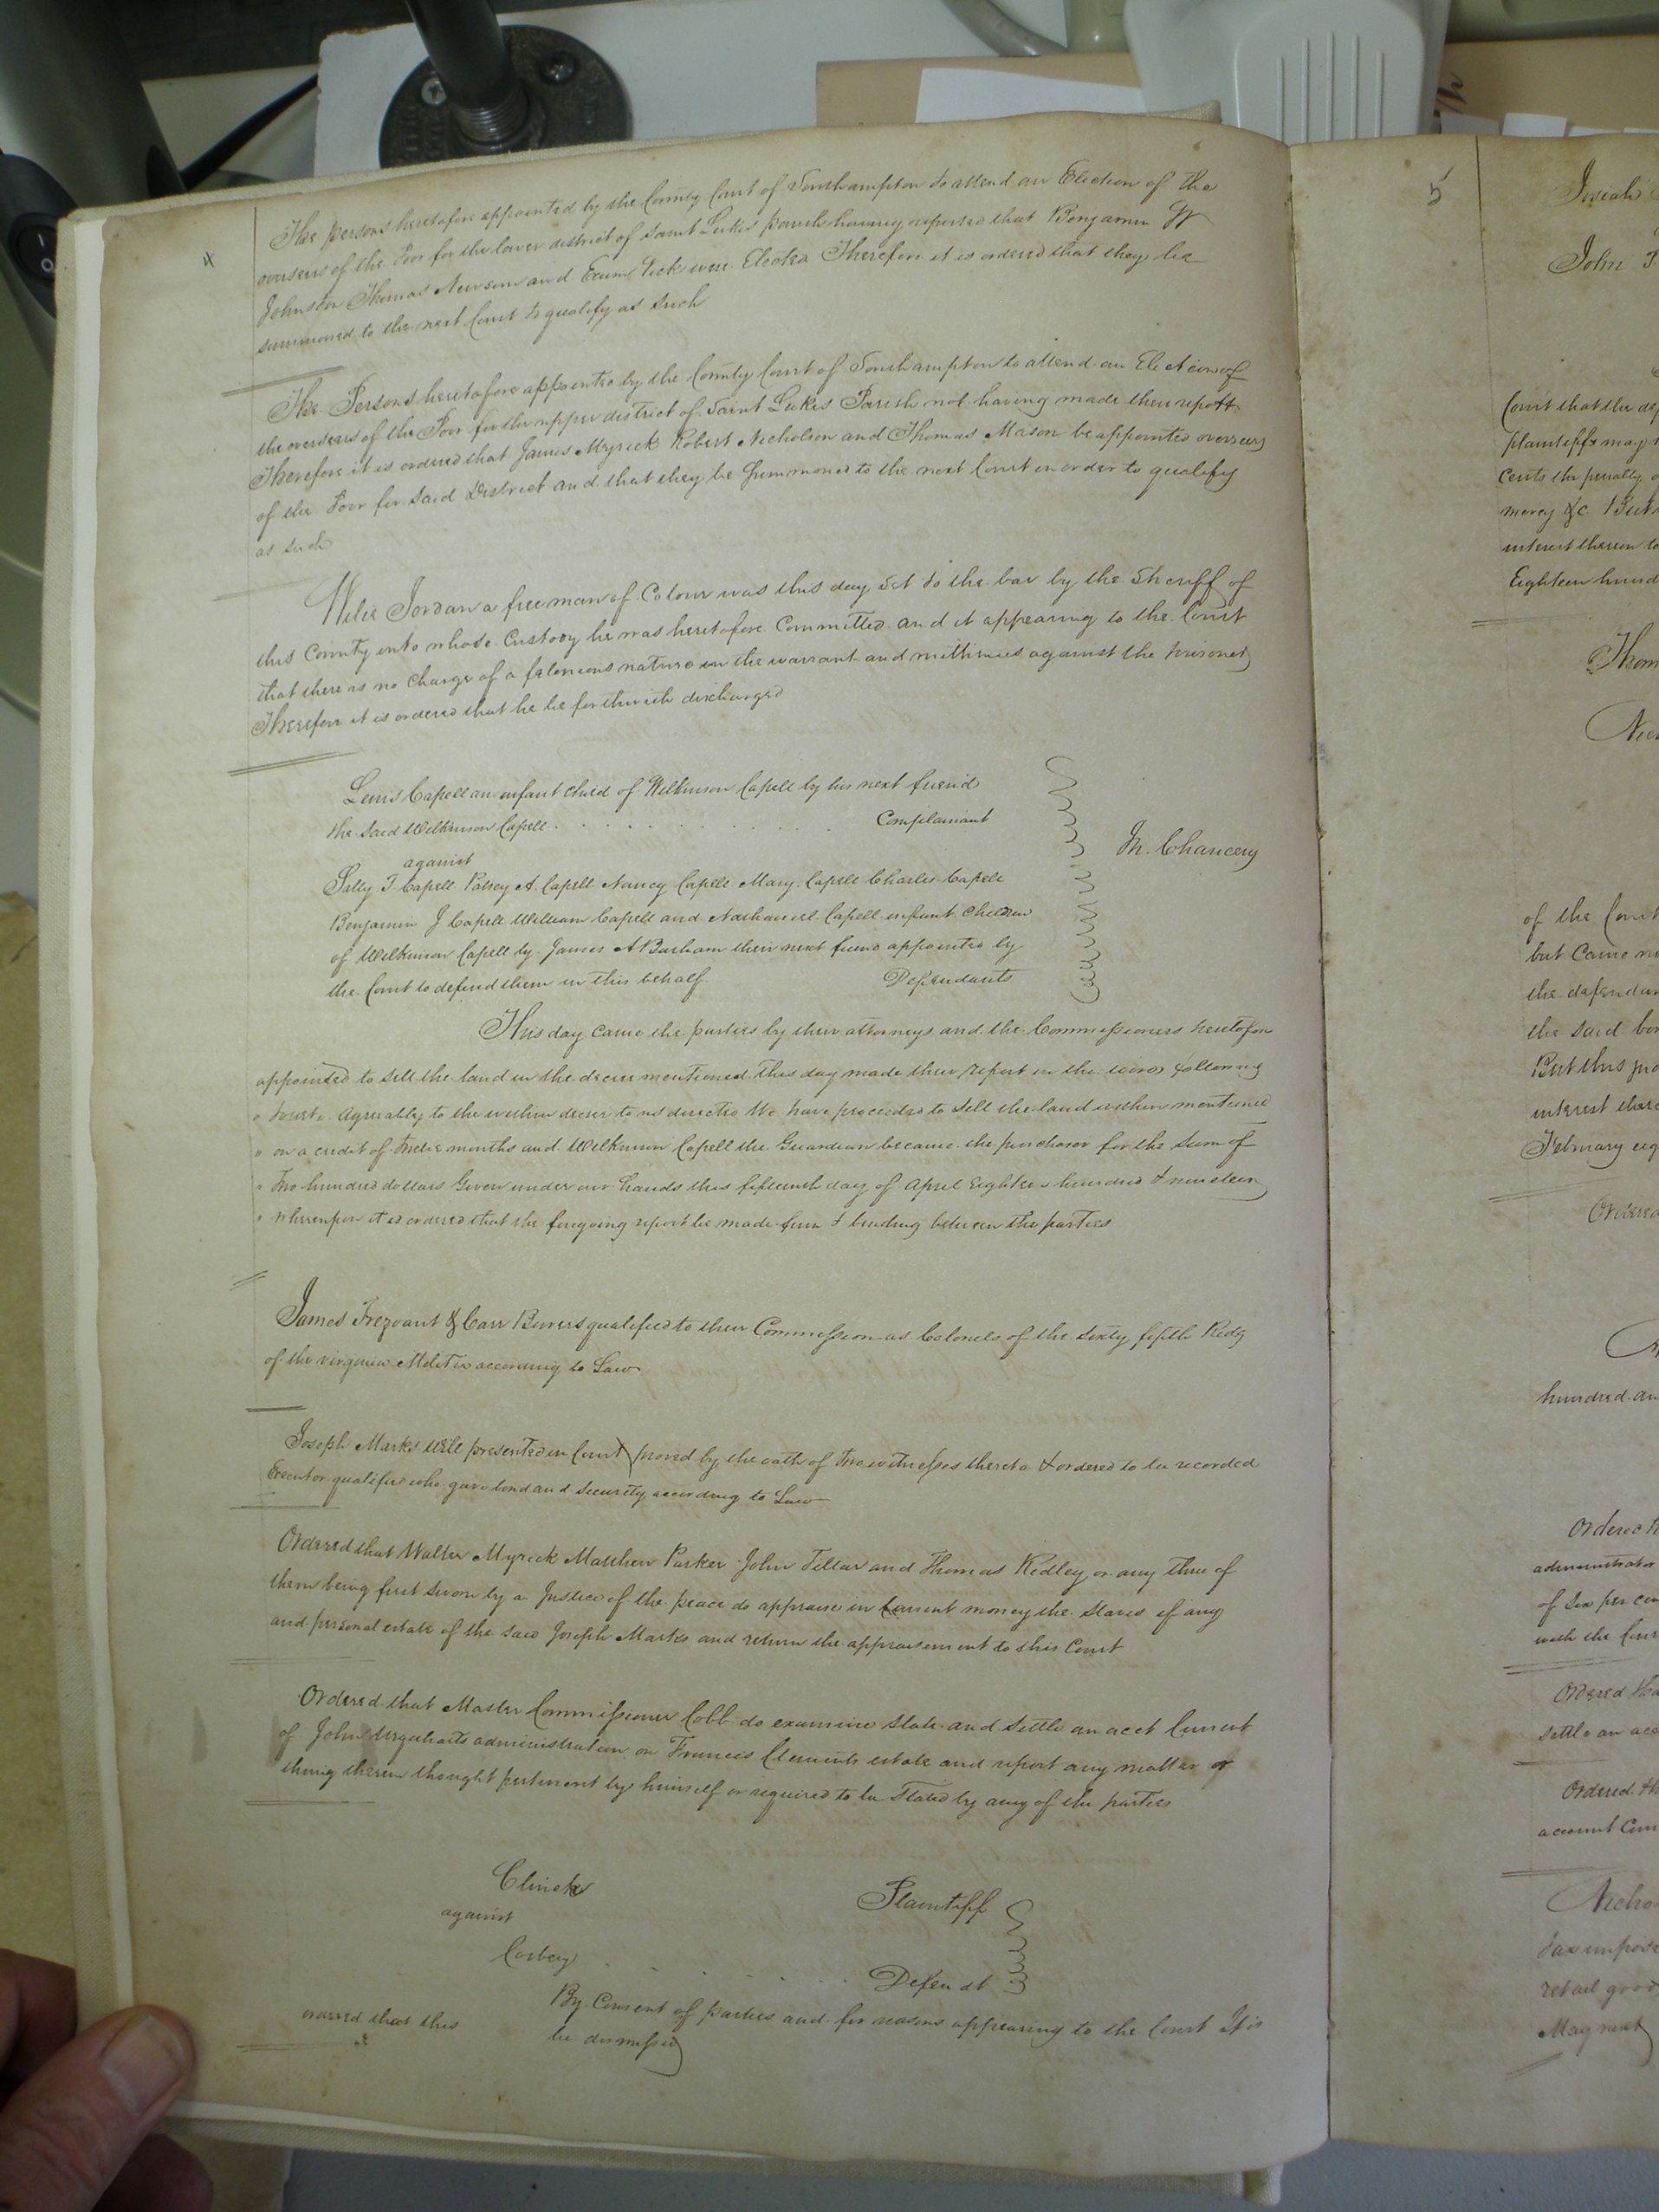 4
The persons heretofore appointed by the County Court of Southampton to attend an Election of the
overseers of the Poor for the lower district of Saint Lukes parish having reported that Benjamin W
Johnston Thomas Newsom and Exum were Elected Therefore it is ordered that they be
summoned to the next Court to qualify as such
The Persons heretofore appointed by the County Court of Southampton to attend an Election of
the overseers of the Poor for the upper district of Saint Lukes Parish not having made their report
Therefore it is ordered that James Myrick Robert Nicholson and Thomas Mason be appointed overseers
of the Poor for said District and that they be Summoned to the next Court in order to qualify
as such
Wilie Jordan a free man of Colour was this day Set to the bar by the Sheriff of
this County into whose Custody he was heretofore Committed and it appearing to the Court
that there is no Charge of a felonious nature in the warrant and mittimus against the prisoner
Therefore it is ordered that he be forthwith discharged
Lewis Capell an infant child of Wilkinson Capell by his next friend
the said Wilkinson Capell . . . . . . . . . Complainant
against
In Chancery
Sally T. Capell Patsey A. Capell Nancy Capell Mary Capell Charles Capell
Benjamin J Capell William Capell and Nathaniel Capell infant Children
of Wilkinson Capell by James A Barham their next friend appointed by
the Court to defend them in this behalf. Defendants
This day came the parties by their attorneys and the Commissioners heretofore
appointed to sell the land in the decree mentioned this day made their report in the words following
" towit. Agreeably to the within decree to us directed We have proceeded to Sell the land within mentioned
" on a credit of Twelve months and Wilkinson Capell the Guardian became the purchaser for the Sum of
" Two hundred dollars Given under our hands this fifteenth day of April Eighteen hundred & nineteen
" whereupon it is ordered that the foregoing report be made firm & binding between the parties
James Trezvant & Carr Bowers qualified to their Commission as Colonels of the Sixty fifth Redg
of the virginia Militia according to Law
Joseph Marks Will presented in Court proved by the oath of Two witnesses thereto & ordered to be recorded
Executor qualified who gave bond and Security according to Law
Ordered that Walter Myrick Matthew Parker John Tillar and Thomas Ridley or any three of
them being first Sworn by a Justice of the peace do appraise in Current money the Slaves if any
and personal estate of the said Joseph Marks and return the appraisement to this Court
Ordered that Master Commissioner Cobb do examine State and Settle an acct Current
of John Urquharts administration on Francis Clements estate and report any matter or
thing therein thought pertinent by himself or required to be Stated by any of the parties
Clinch Plaintiff
against
Corbey . . . . . . Defendt
By Consent of parties and for reasons appearing to the Court It is
ordered that this be dismissed
5
Josiah
John
Court that the
plaintiffs may
Cents the penalty
mercy &c But
interest thereon
Eighteen hund
Thom
of the Court
but Came
the defendan
the said
But this
interest
February
Ordered
hundred
Ordered
administrator
of Six per
with the
Ordered
Settle an acc
Ordered
account
retail good
May next